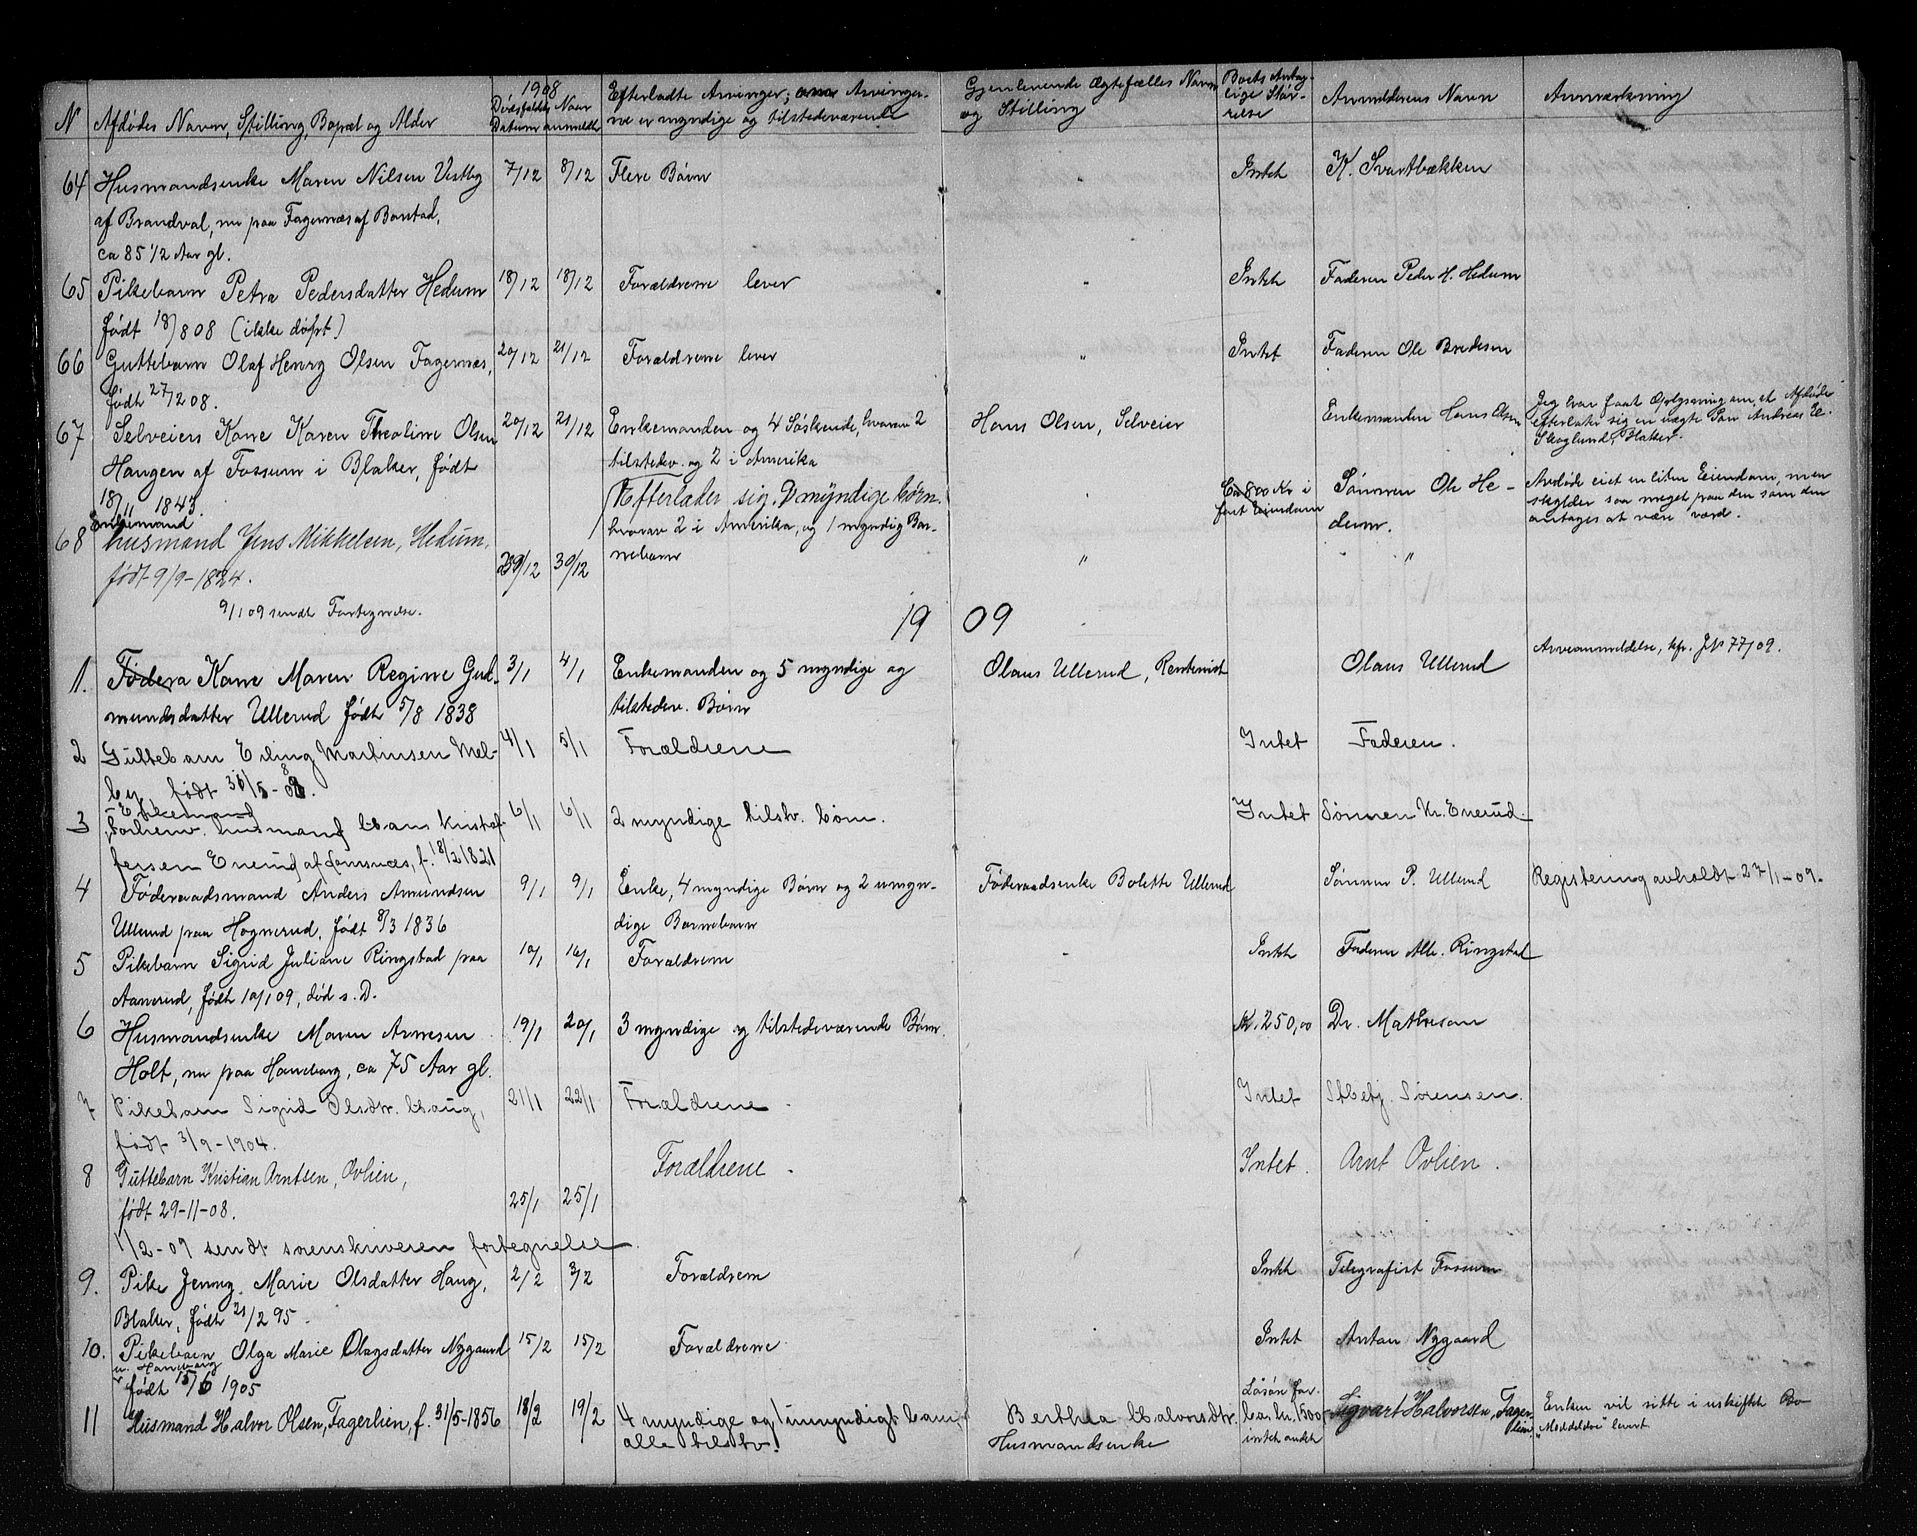 1908
N Afdødes Navn, Stilling, Bopæl og Alder Dødsfaldets Datum Naar anmeldt Efterladte Arvinger; om Arvingerne er myndige og tilstedeværende Gjenlevende Ægtefælles Navn og Stilling Boets Antagelige Størrelse Anmelderens Navn Anmærkning
64 Husmandsenke Maren Nilsen Vestby 7/12 8/12 Flere Børn " Intet K. Svartbækken
af Brandval, nu paa Fagernæs af Bønstad,
ca 85 1/2 Aar gl.
65 Pikebarn Petra Pedersdatter Hedum 18/12 18/12 Forældrene lever " Intet Faderen Peder H. Hedum
født 18/8 08 (ikke døpt)
66 Guttebarn Olaf Henry Olsen Fagernæs, 20/12 21/12 Forældrene lever " Intet Faderen Ole Bredesen
født 27/2 08.
67 Selveiers Kone Karen Theoline Olsen 20/12 21/12 Enkemanden og 4 Søskende, hvorav 2 Hans Olsen, Selveier Enkemanden Hans Olsen Jeg har faat Oplysning om, at Afdøde
Haugen af Fossum i Blaker, født tilstedev. og 2 i Amerika efterlater sig en uægte Søn Andreas E.
18/11 1843. Skoglund, Blaker.
68 Enkemand Efterlader sig 9 myndige børn " Ca 800 Kr i Sønnen Ole He- Avdøde eiet en liten Eiendom, men
husmand Jens Mikkelsen, Hedum, 29/12 30/12 hvorav 2 i Amerika, og 1 myndig Bar- fast Eiendom dum. skylder saa meget paa den som den
født 9/9-1824. nebarn " " " antages at være værd.
9/1 09 sendt Fortegnelse.
1909
1. Føderaa Kone Maren Regine Gud- 3/1 4/1 Enkemanden og 5 myndige og Olaus Ullerud, Rentenist Olaus Ullerud Arveanmeldelse, kfr. JN 77/09.
mundsdatter Ullerud født 5/8 1838 tilstedev. Børn
2 Guttebarn Erling Martinsen Mel- 4/1 5/1 Forældrene Intet Faderen.
by født 31/5-08.
3 Enkemand
Forhenv. husmand Hans Kristof- 6/1 6/1 2 myndige tilstv. børn. Intet Sønnen Kr. Enerud.
fersen Enerud af Lomsnæs, f. 18/2 1821
4 Føderaadsmand Anders Amundsen 9/1 9/1 Enke, 4 myndige Børn og 2 umyn- Føderaadsenke Bolette Ullerud Sønnen P. Ullerud Registrering avholdt 27/1-09.
Ullerud paa Hognerud, født 8/3 1836 dige Barnebarn
5 Pikebarn Sigrid Juliane Ringstad paa 10/1 16/1 Forældrene " Intet Faderen Alb. Ringstad
Aanerud, født 10/1 09, død s. D.
6 Husmandsenke Maren Arnesen 19/1 20/1 3 myndige og tilstedeværende Børn. Kr. 250,00 Dr. Mathisen
Holt, nu paa Haneborg, ca 75 Aar gl.
7 Pikebarn Sigrid Olsdtr. Haug, 21/1 22/1 Forældrene. Intet Stbetj. Sørensen.
født 3/9-1904.
8 Guttebarn Kristian Arntsen, Ovlien, 25/1 25/1 Forældrene. Intet. Arnt Ovlien.
født 29-11-08.
1/2-09 sendt sorenskriveren fortegnelse.
9. Pike Jenny Marie Olsdatter Haug, 2/2 3/2 Forældrene Intet Telegrafist Fossum
Blaker, født 21/2 95.
10. Pikebarn Olga Marie Olagsdatter Nygaard 15/2 15/2 Forældrene Intet Anton Nygaard
u. Haneborg
født 15/6 1905
11 Husmand Halvor Olsen, Fagerlien, f. 31/5-1856 18/2 19/2 4 myndige og 1 umyndigt barn, Berthea Halvorsdtr. Løsøre for- Sigvart Halvorsen, Fager- Enken vil sitte i uskiftet Bo
alle tilstv. Husmandsenke ca. kr. 1500, lien. "Meddelelse" levert
intet andet